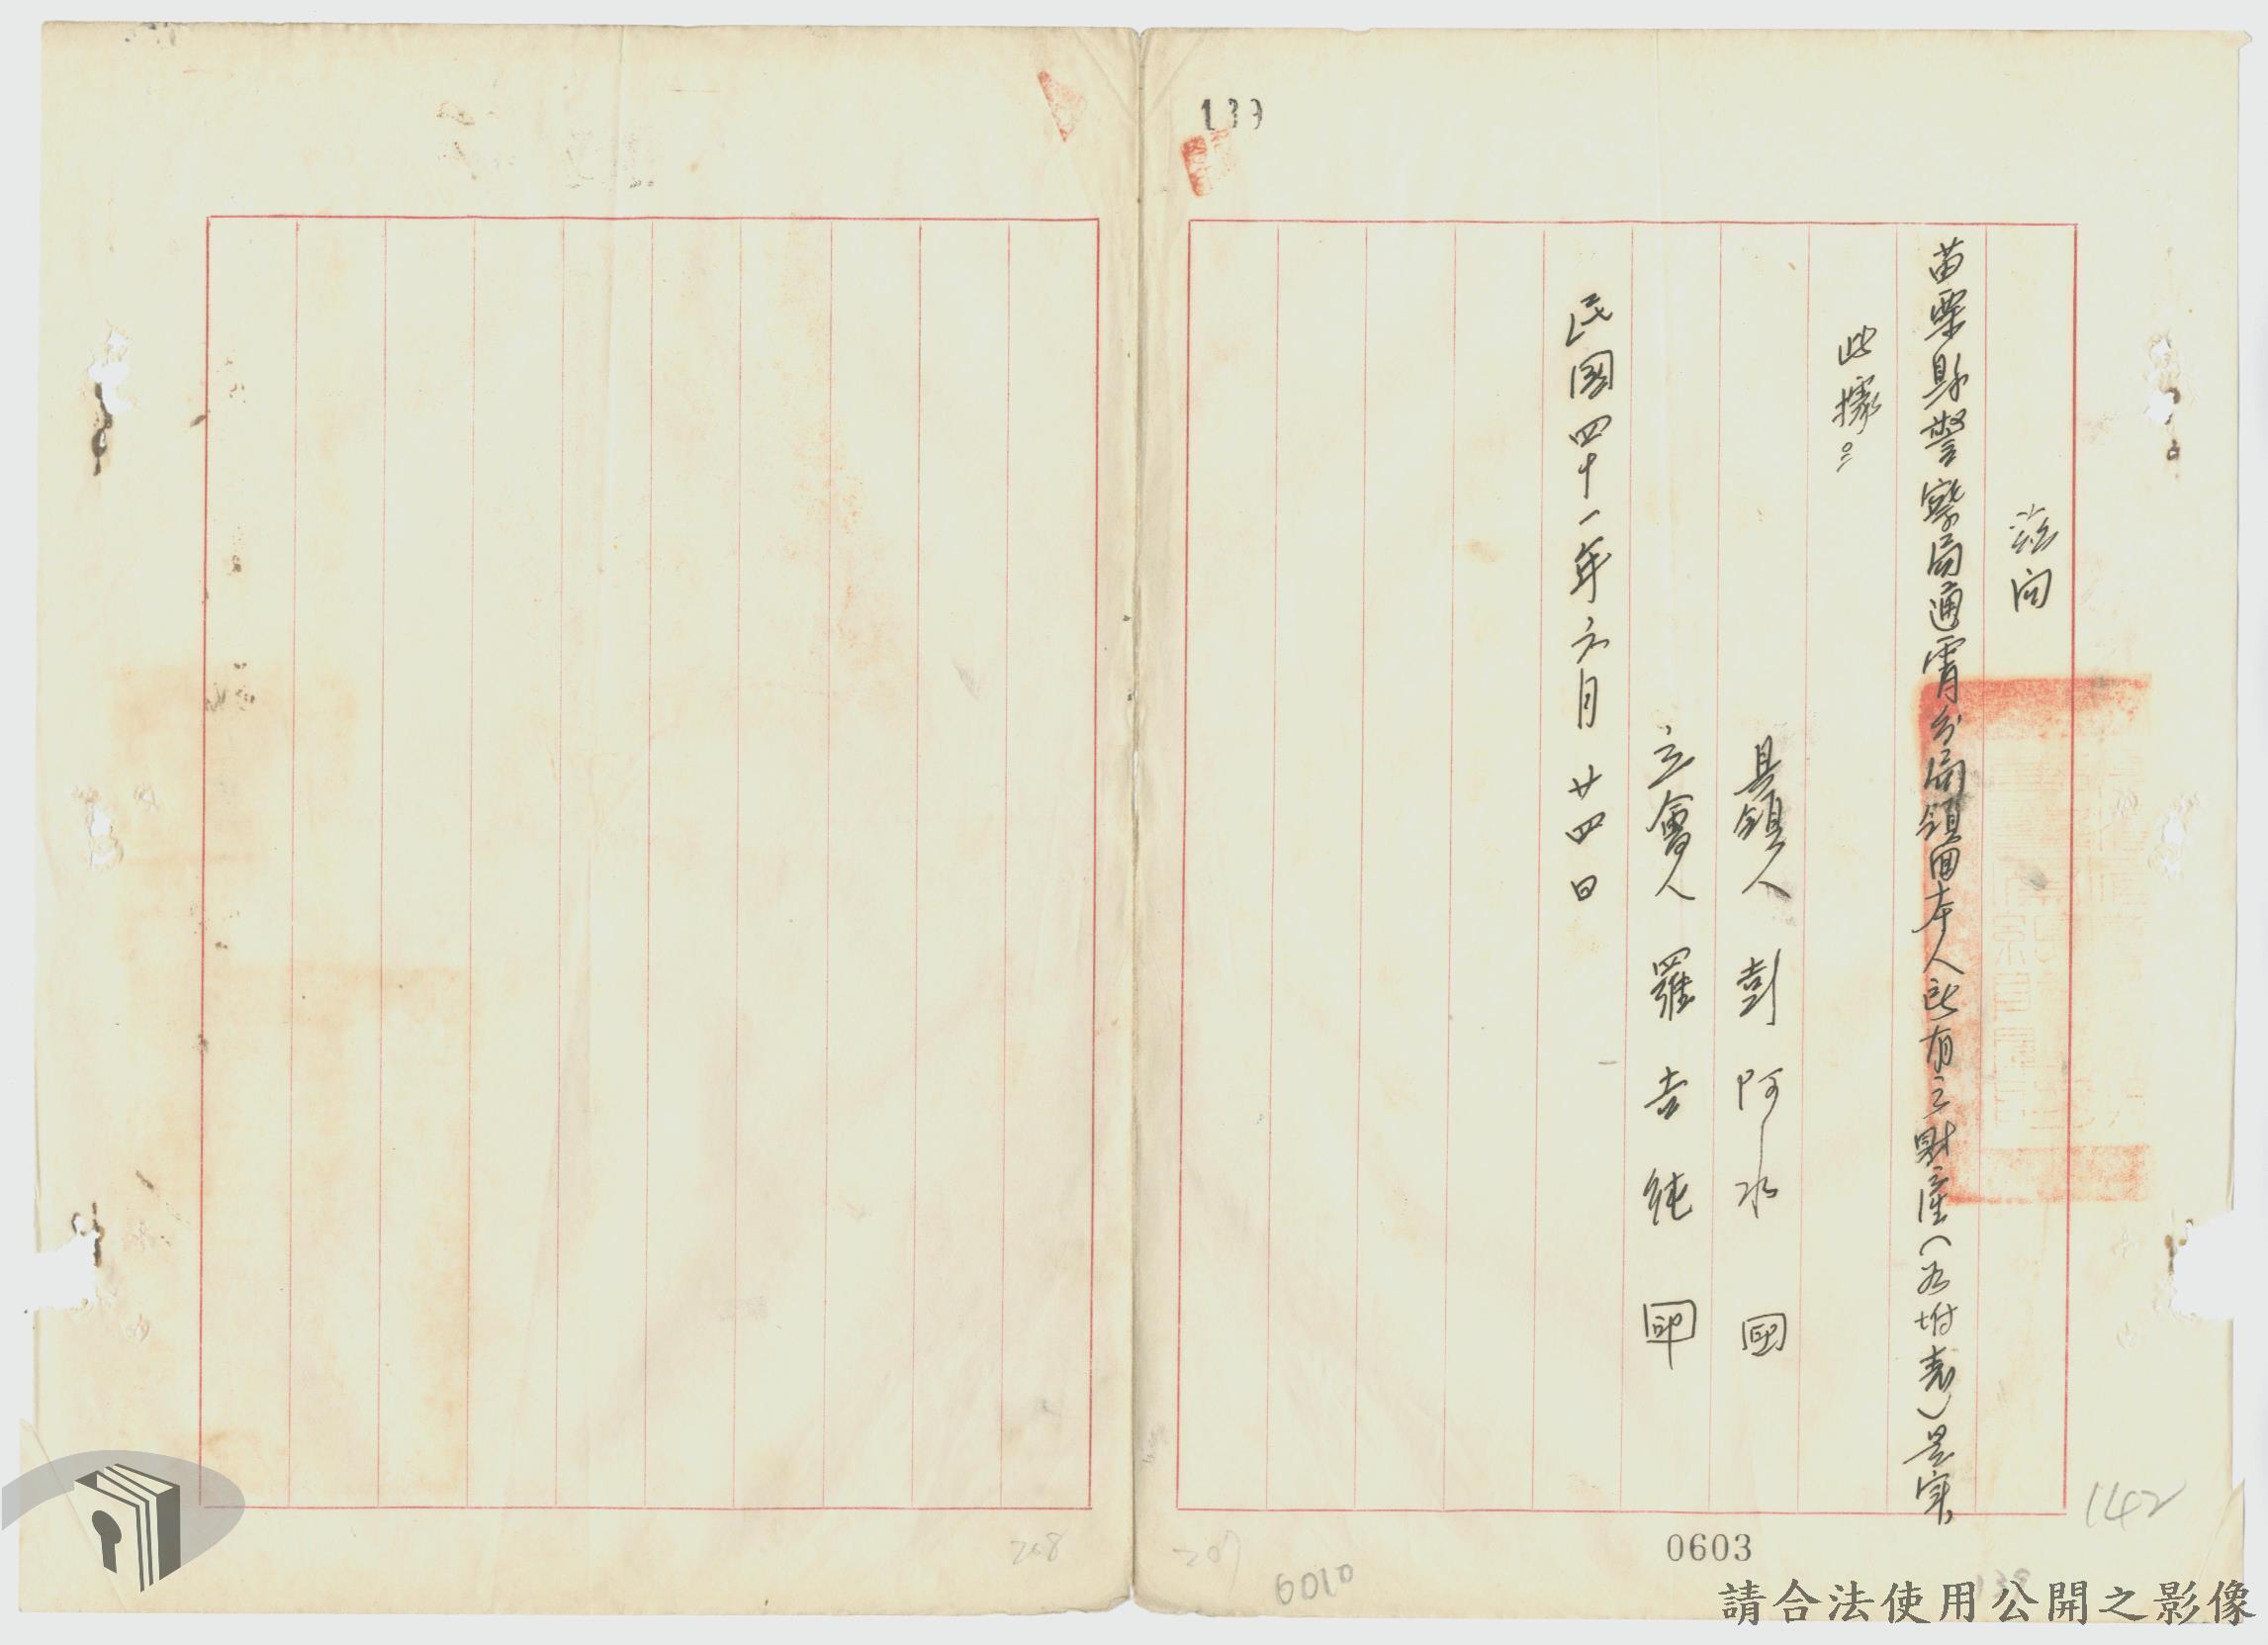 139
茲向
苗栗縣警察局通霄分局領回本人所有之財產(如附表)是实
此據。
具領人 彭阿水 印
立會人 羅吉純 印
民國四十一年六月廿四日
142
0603
207
6010
208
請合法使用公開之影像